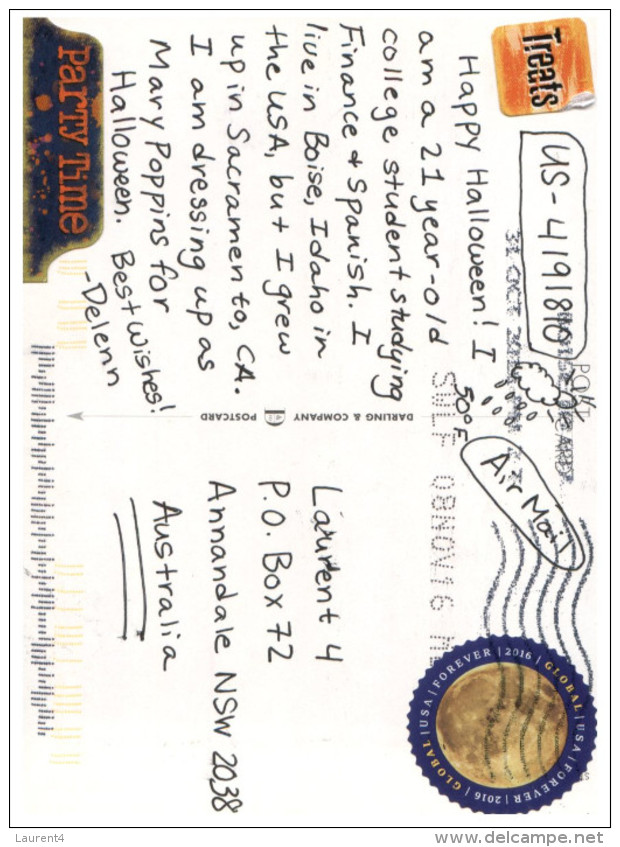 Treats
US-4191810
31 OCT
Happy Halloween! I
am a 21 year-old
college student studying
Finance & Spanish. I
live in Boise, Idaho in
the USA, but I grew
up in Sacramento, CA.
I am dressing up as
Mary Poppins for
Halloween. Best wishes!
-Delenn
PARTY TIME
50°F
DARLING & COMPANY POSTCARD
Air Mail
08NOV16
GLOBAL | USA | FOREVER | 2016 | GLOBAL | USA | FOREVER | 2016 |
Laurent 4
P.O. Box 72
Annandale NSW 2038
Australia
Laurent4
www.delcampe.net